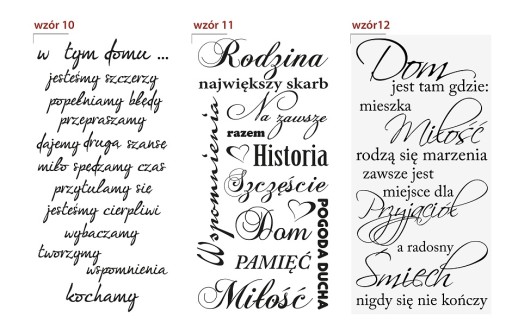 wzór 10
w tym domu ...
jesteśmy szczerzy
popełniamy błędy
przepraszamy
dajemy druga szanse
miło spędzamy czas
przytulamy sie
jesteśmy cierpliwi
wybaczamy
tworzymy
wspomnienia
kochamy
wzór 11
Rodzina
największy skarb
Na zawsze
razem
Historia
Szczęście
Dom
PAMIĘĆ
Miłość
Wspomnienia
POGODA DUCHA
wzór12
Dom
jest tam gdzie:
mieszka
Miłość
rodzą się marzenia
zawsze jest
miejsce dla
Przyjaciół
a radosny
Śmiech
nigdy się nie kończy